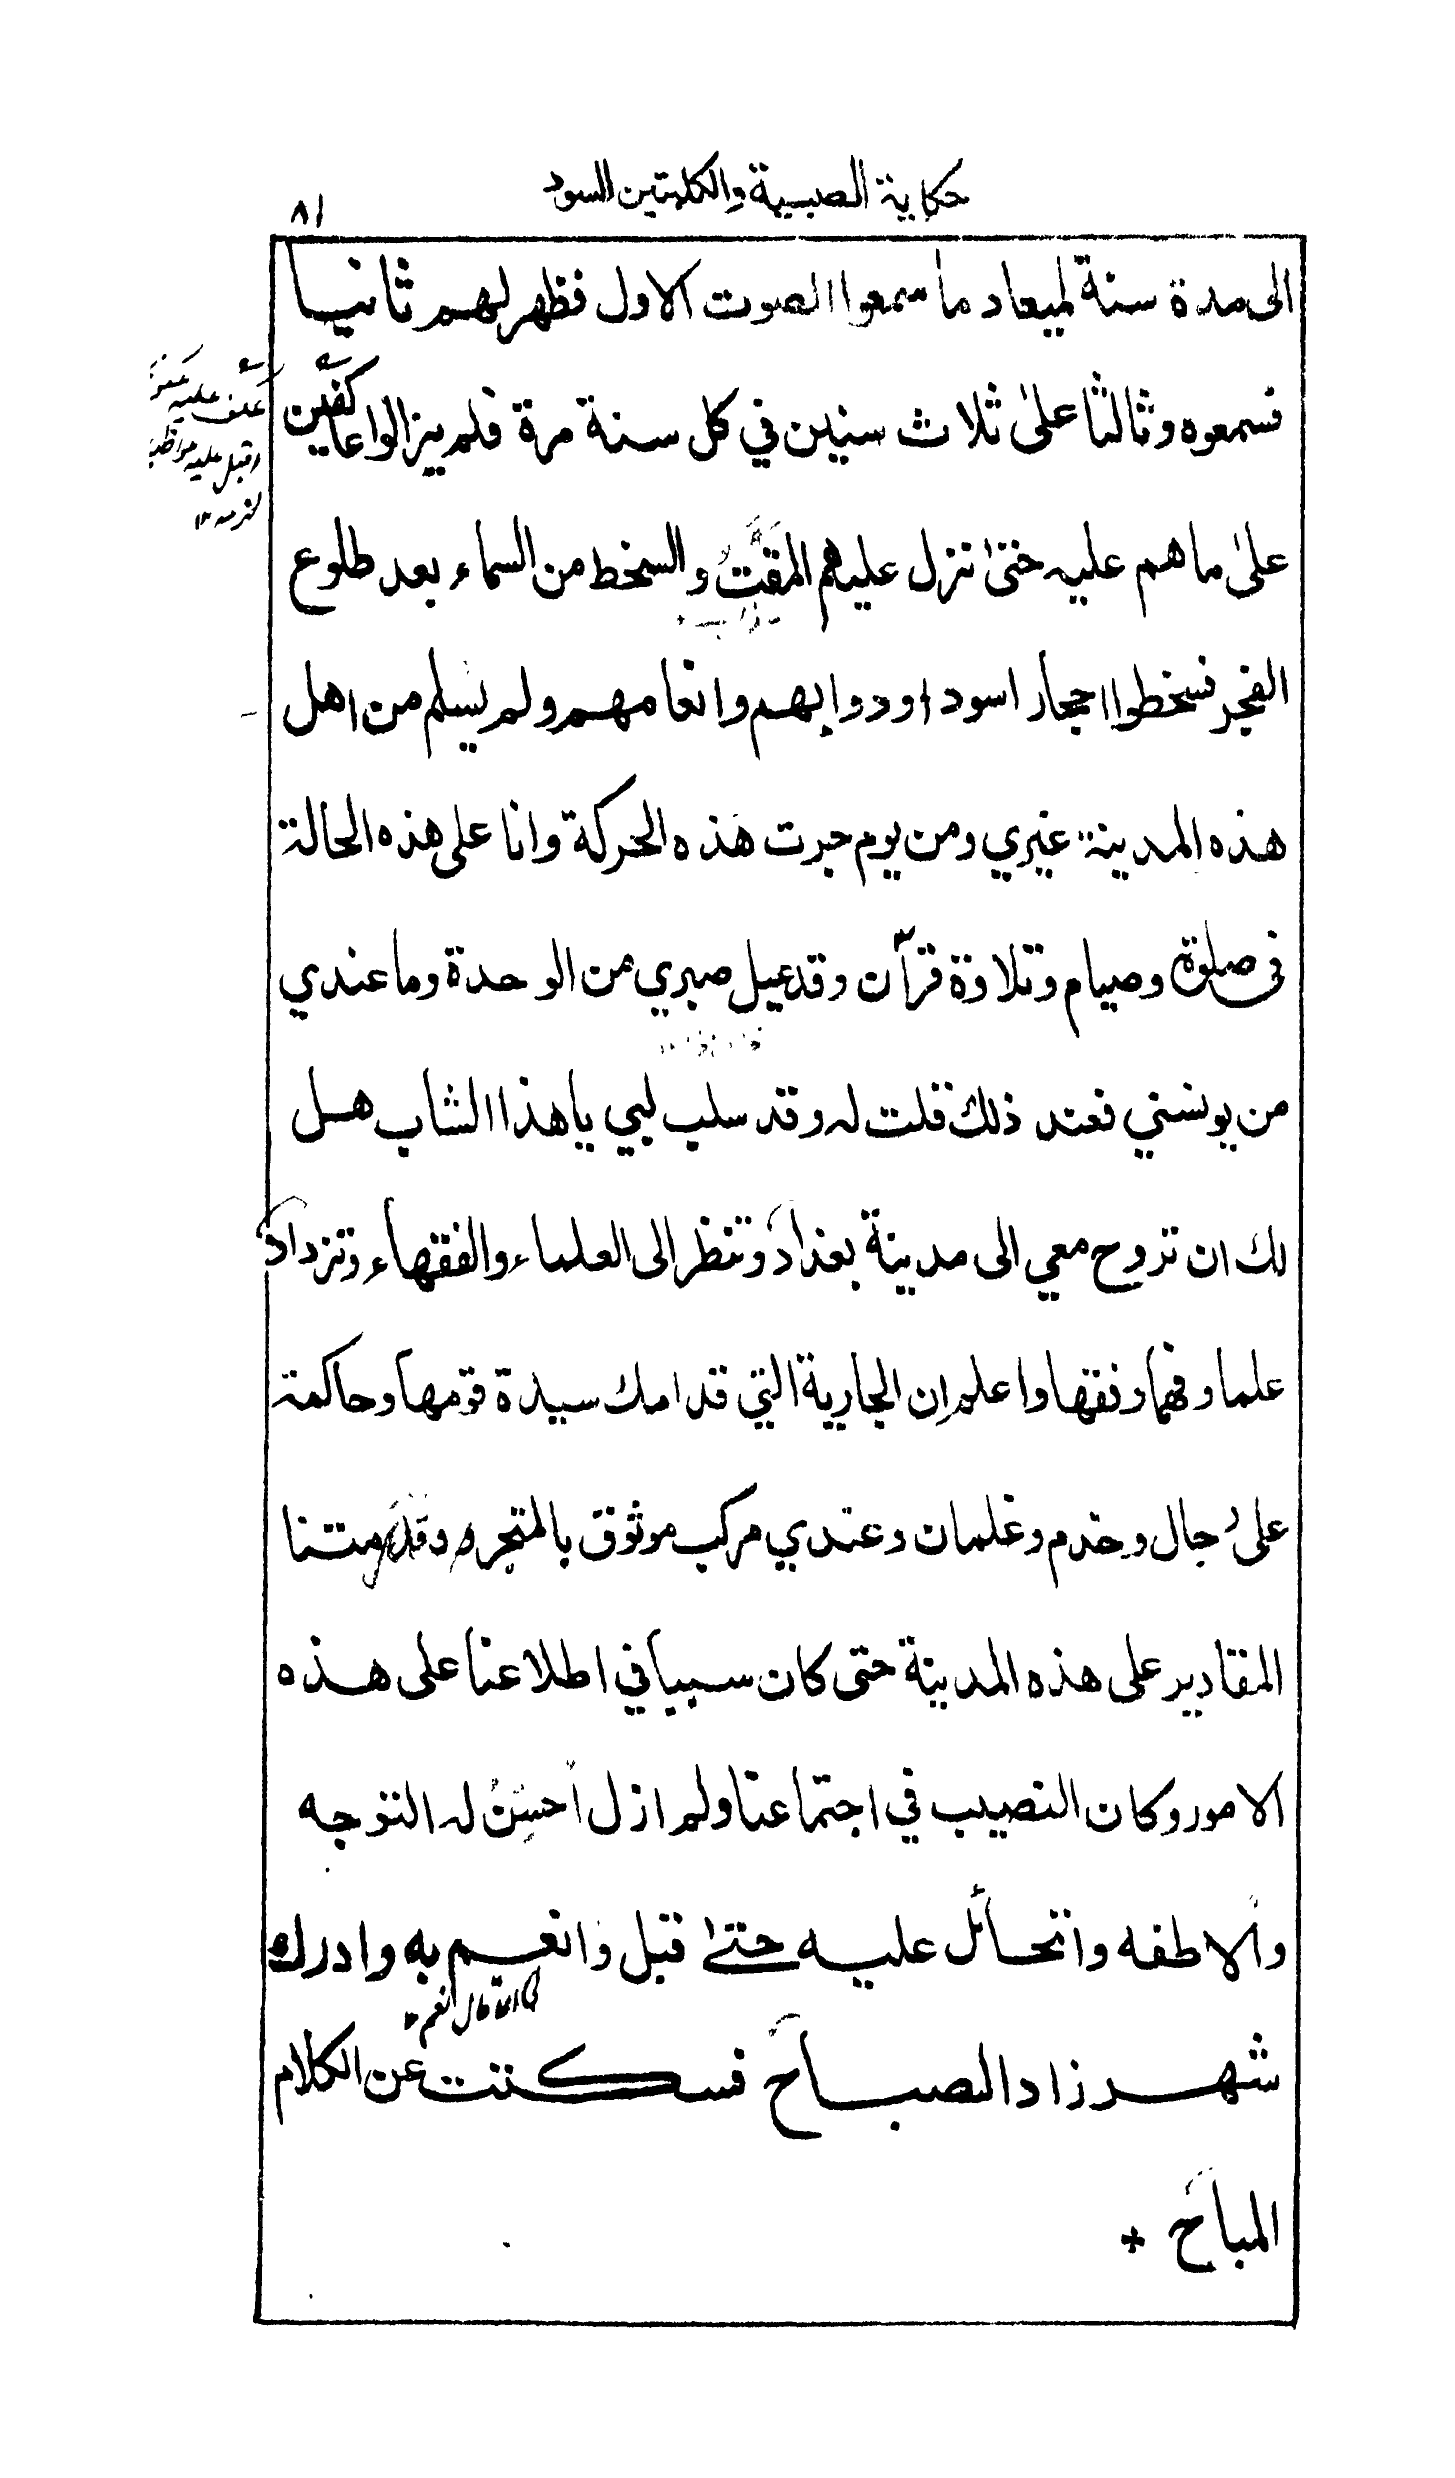 حكاية الصبية والكلبتين السود
٨١
الى مدة سنة لميعاد ما سمعوا الصوت الاول فظهر لهم ثانيا
فسمعوه وثالثا على ثلاث سنين في كل سنة مرة فلم يزالوا عاكفين
على ما هم عليه حتى نزل عليهم المقت والسخط من السماء بعد طلوع
الفجر فسخطوا احجار اسود او دوابهم وانعامهم ولم يسلم من اهل
هذه المدينة غيري ومن يوم جرت هذه الحركة وانا على هذه الحالة
في صلوة وصيام وتلاوة قرآن وقد عيل صبري من الوحدة وما عندي
من يونسني فعند ذلك قلت له وقد سلب لبي يا هذا الشاب هل
لك ان تروح معي الى مدينة بغداد وتنظر الى العلماء والفقهاء وتزداد
علما وفهما وفقها واعلم ان الجارية التي قدامك سيدة قومها وحاكمة
على رجال وخدم وغلمان وعندي مركب موثوق بالمتجر وقد رمتنا
المقادير على هذه المدينة حتى كان سببا في اطلاعنا على هذه
الامور وكان النصيب في اجتماعنا ولم ازل احسن له التوجه
والاطفه واتحائل عليه حتى قبل وانعم به وادرك
شهرزاد الصباح فسكتت عن الكلام
المباح +
عكف عليه
اقبل عليه